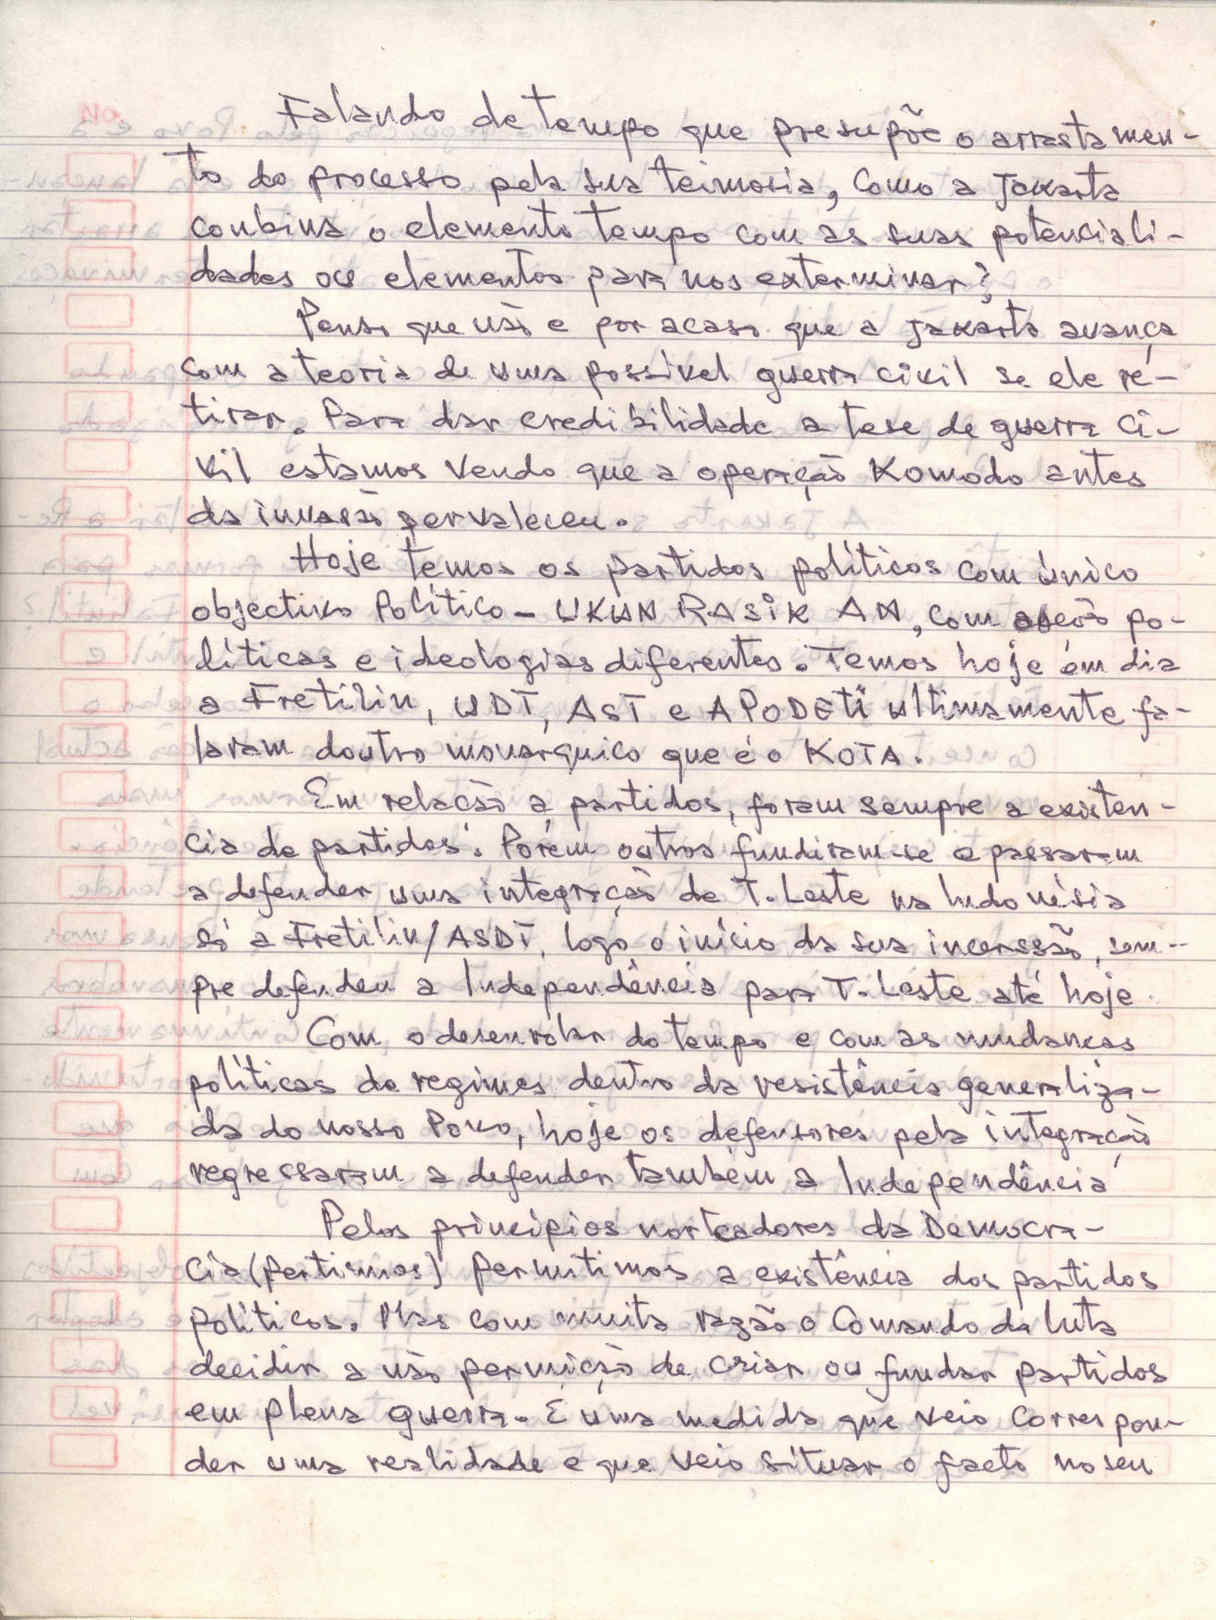 Falando de tempo que presupõe o arrastamen-
to do processo pela sua teimosia, como a Jakarta
conbina o elemento tempo com as suas potenciali-
dades ou elementos para nos exterminar?
Penso que não e por acaso que a Jakarta avança
com a teoria de uma possivel guerra civil se ele re-
tirar. Para dar credibilidade a tese de guerra ci-
vil estamos vendo que a operação Komodo antes
da invasão pervaleceu.
Hoje temos os partidos políticos com único
objectivo Político - UKUN RASIK AN, com po-
líticas e ideologias diferentes. Temos hoje em dia
a Fretilin, UDT, AST e APODETI ultimamente fa-
laram doutro monarquico que é o KOTA.
Em relação a partidos, foram sempre a existen-
cia de partidos. Porém outros fundiram-se e passaram
a defender uma integração de T. Leste na Indonésia
só a Fretilin/ASDT, logo o início da sua incerssão, sem-
pre defendeu a Independência para T. Leste até hoje.
Com o desenrolar do tempo e com as mudanças
políticas de regimes dentro da resistência generaliza-
da do nosso Povo, hoje os defensores pela integração
regressaram a defender também a Independência
Pelos princípios norteadores da Democra-
cia (pertimos) permitimos a existência dos partidos
políticos. Mas com muita razão o Comando da luta
decidir a não permição de criar ou fundar partidos
em plena guerra. E uma medida que veio correspon-
der uma realidade e que veio situar o facto no seu